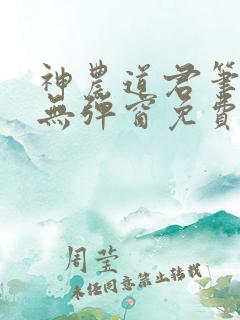 神農道君筆
無彈窗免費
周莹
未经同意禁止转载